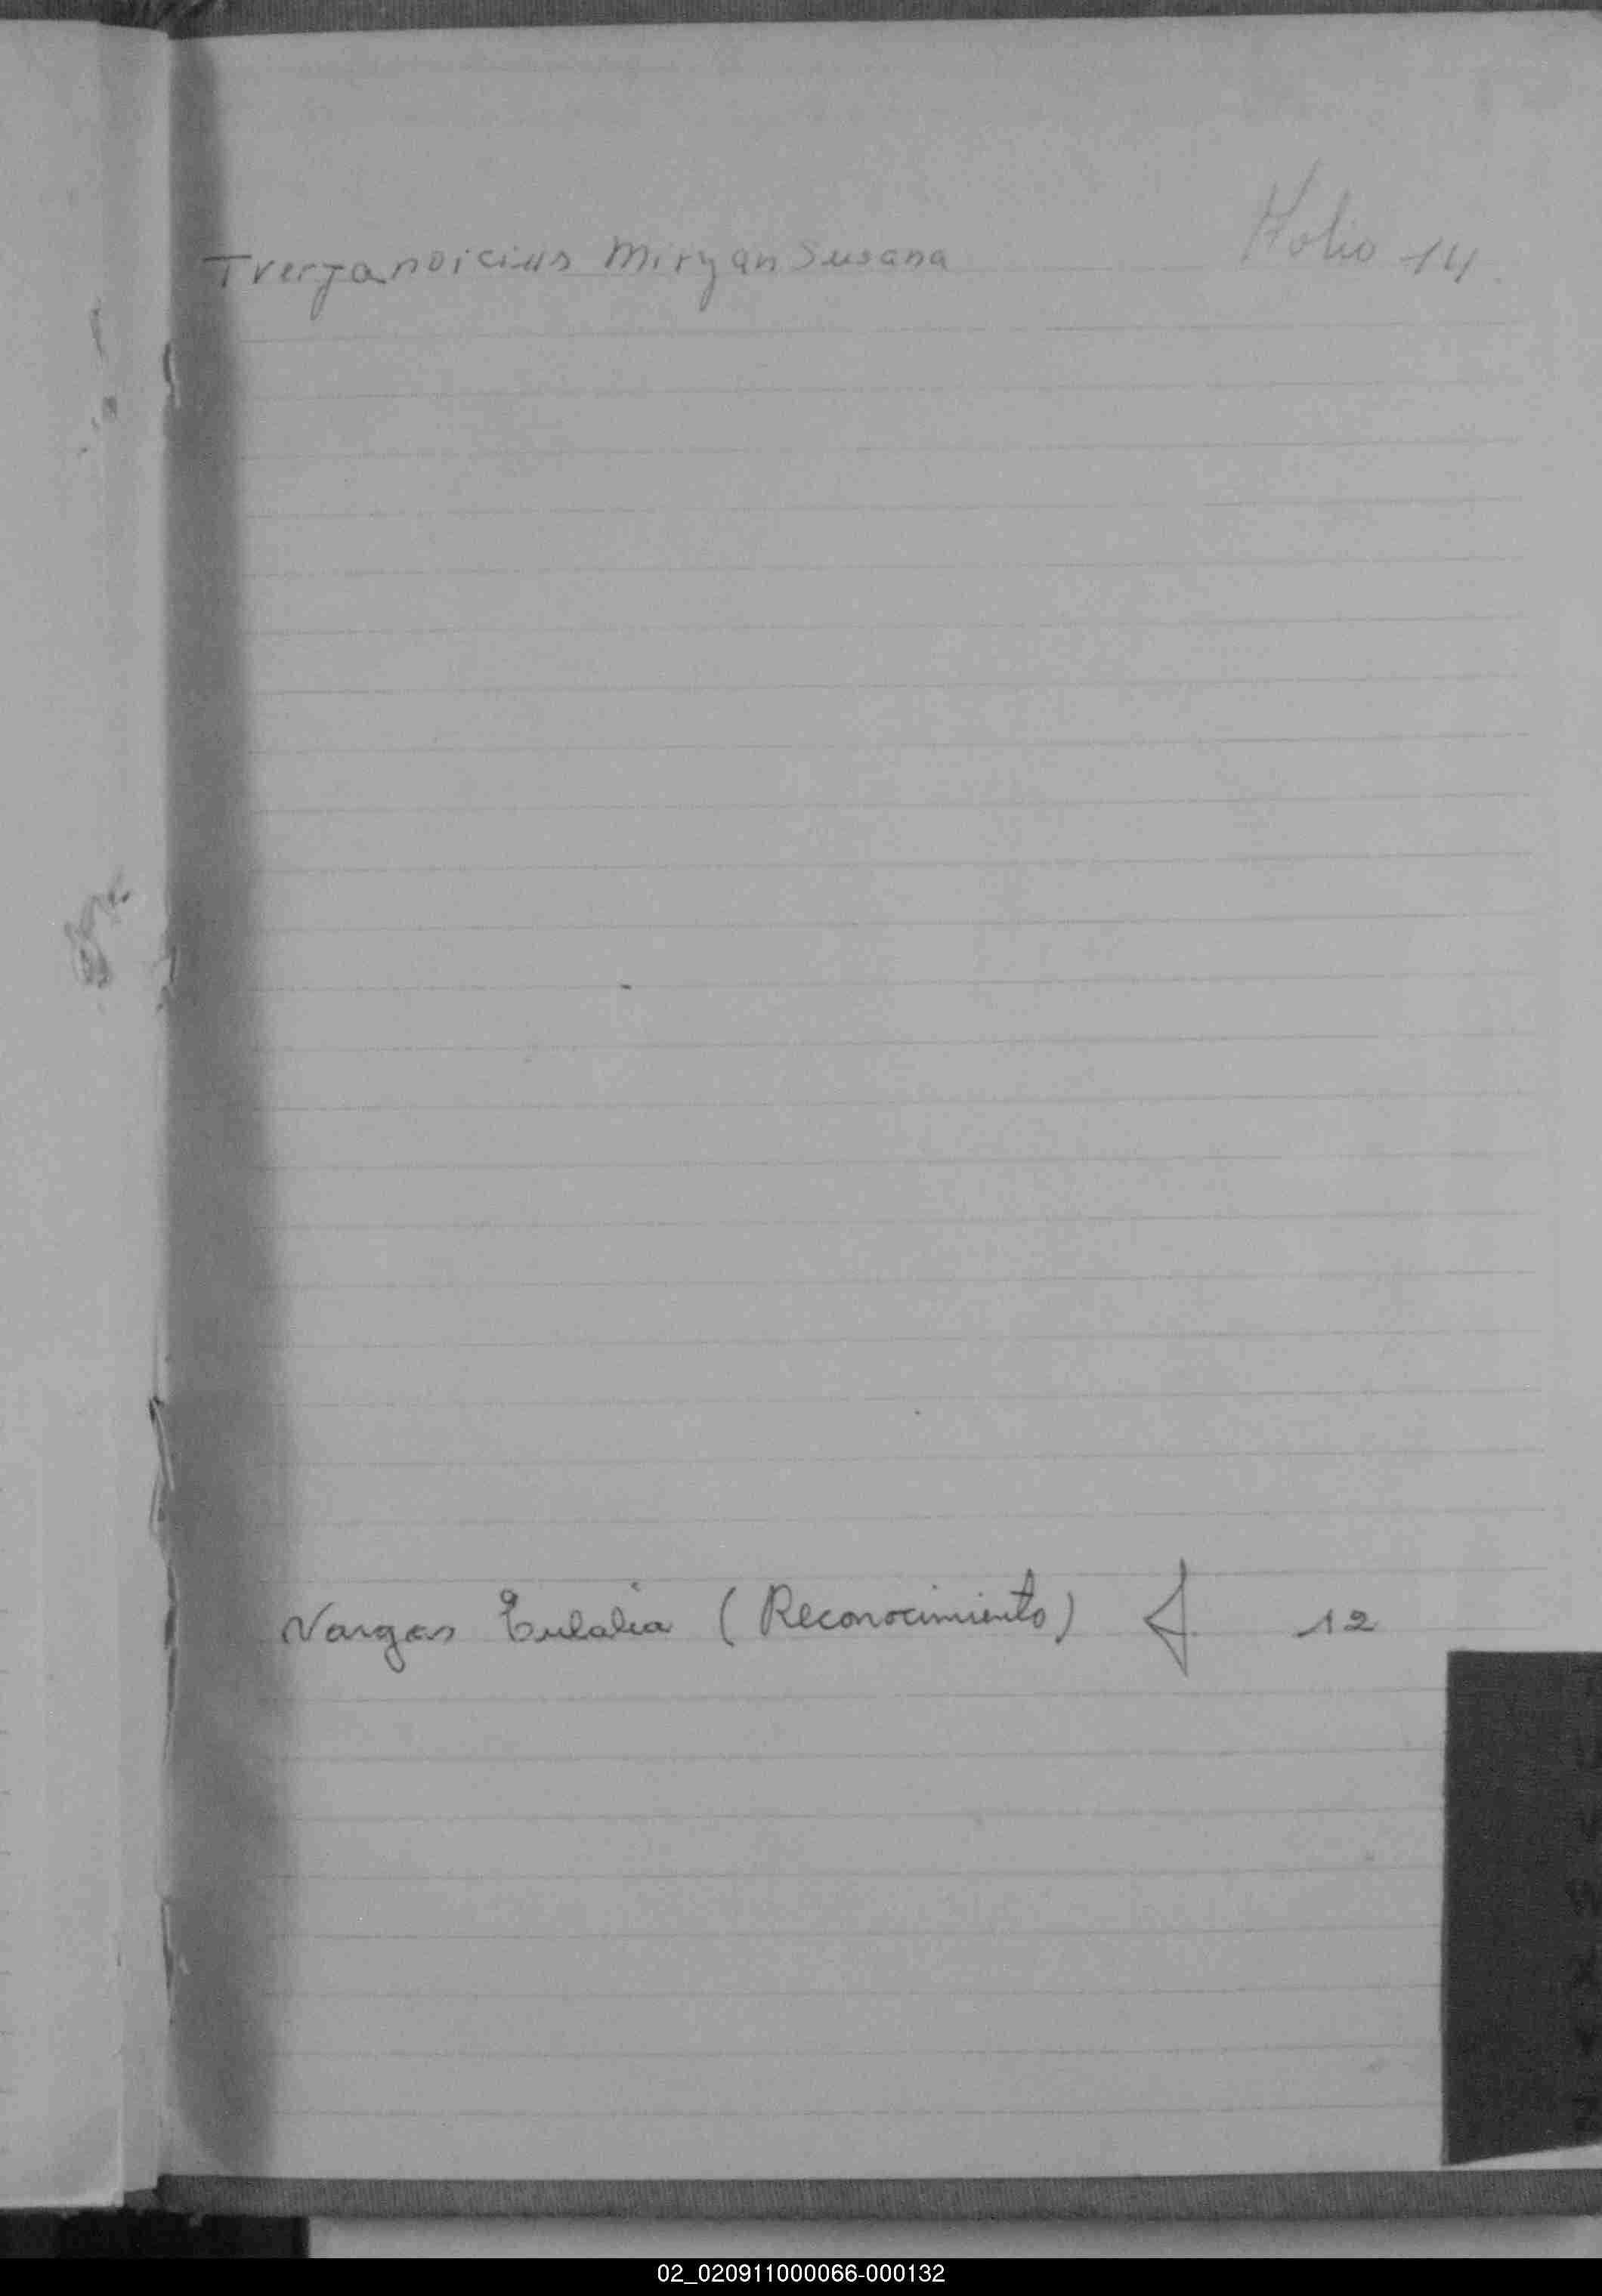 Tverjanoicius Miryan Susana Folio 14.
Vargas Eulalia (Reconocimiento) F 12
02_020911000066-000132